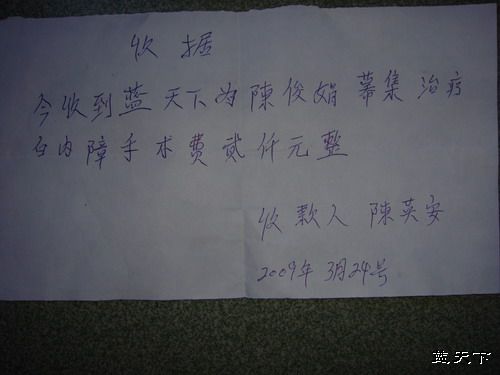 收 据
今收到蓝天下为陳俊娟募集治疗
白内障手术费贰仟元整
收款人 陳英安
2009年3月24号
蓝天下